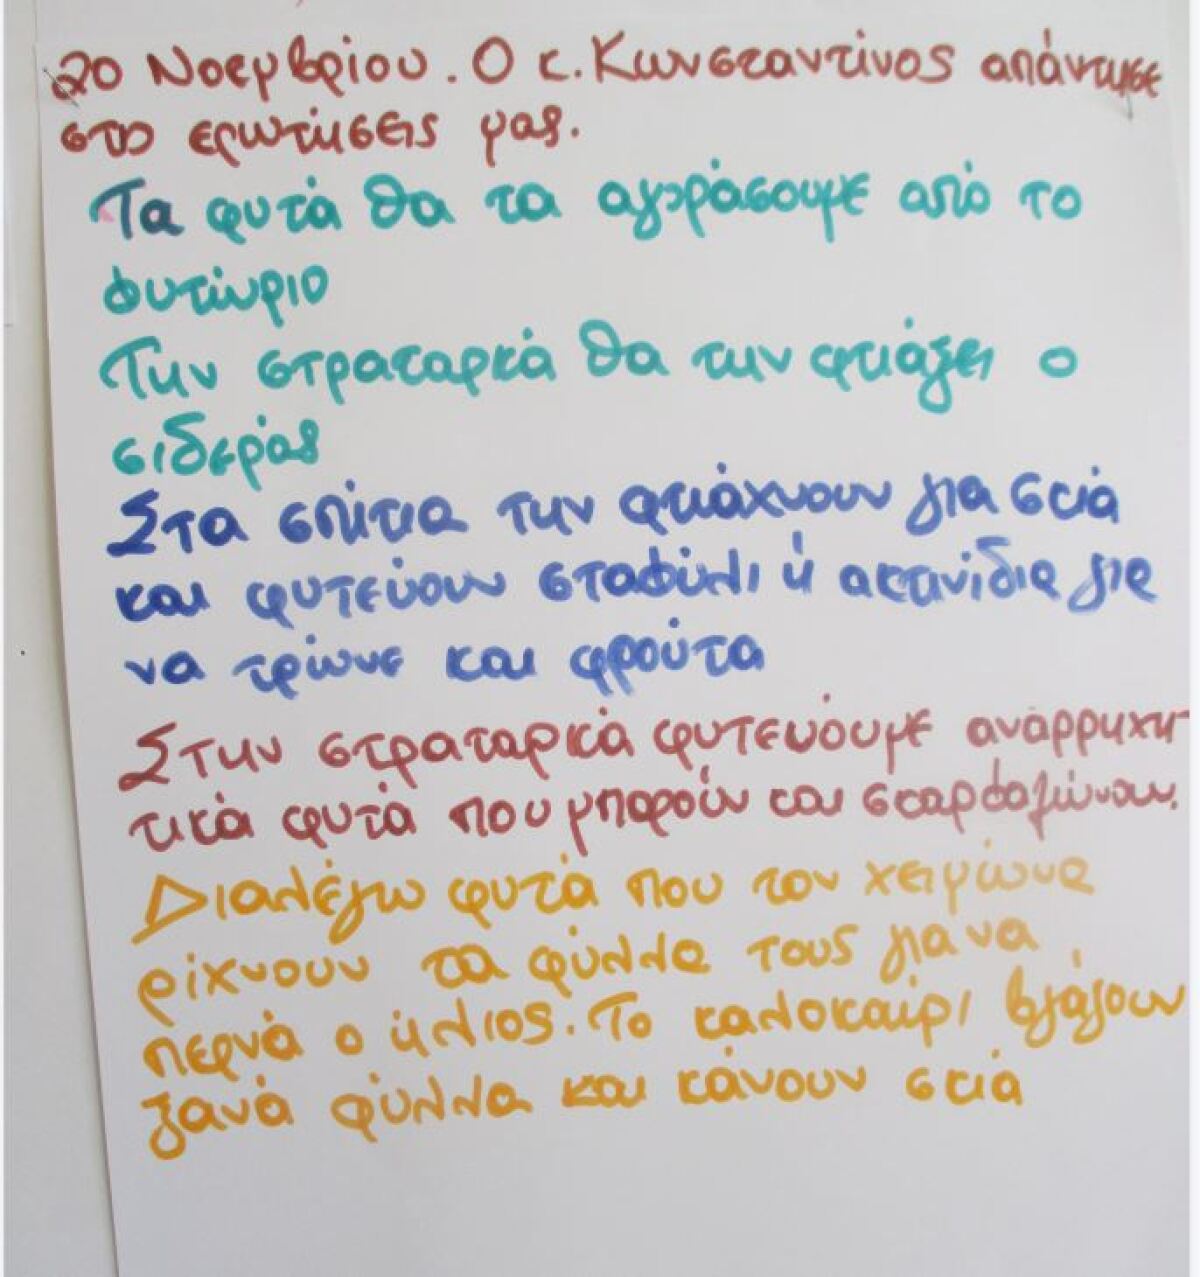 20 Νοεμβρίου. Ο κ. Κωνσταντίνος απάντησε
στις ερωτήσεις μας.
Τα φυτά θα τα αγοράσουμε από το
φυτώριο
Την στραταρκά θα την φτιάξει ο
σιδεράς
Στα σπίτια την φτιάχνουν για σκιά
και φυτεύουν σταφύλι ή ακτινίδια για
να τρώνε και φρούτα
Στην στραταρκά φυτεύουμε αναρρηχη
τικά φυτά που μπορούν και σκαρφαλώνουν.
Διαλέγω φυτά που τον χειμώνα
ρίχνουν τα φύλλα τους για να
περνά ο ήλιος. Το καλοκαίρι βγάζουν
ξανά φύλλα και κάνουν σκιά